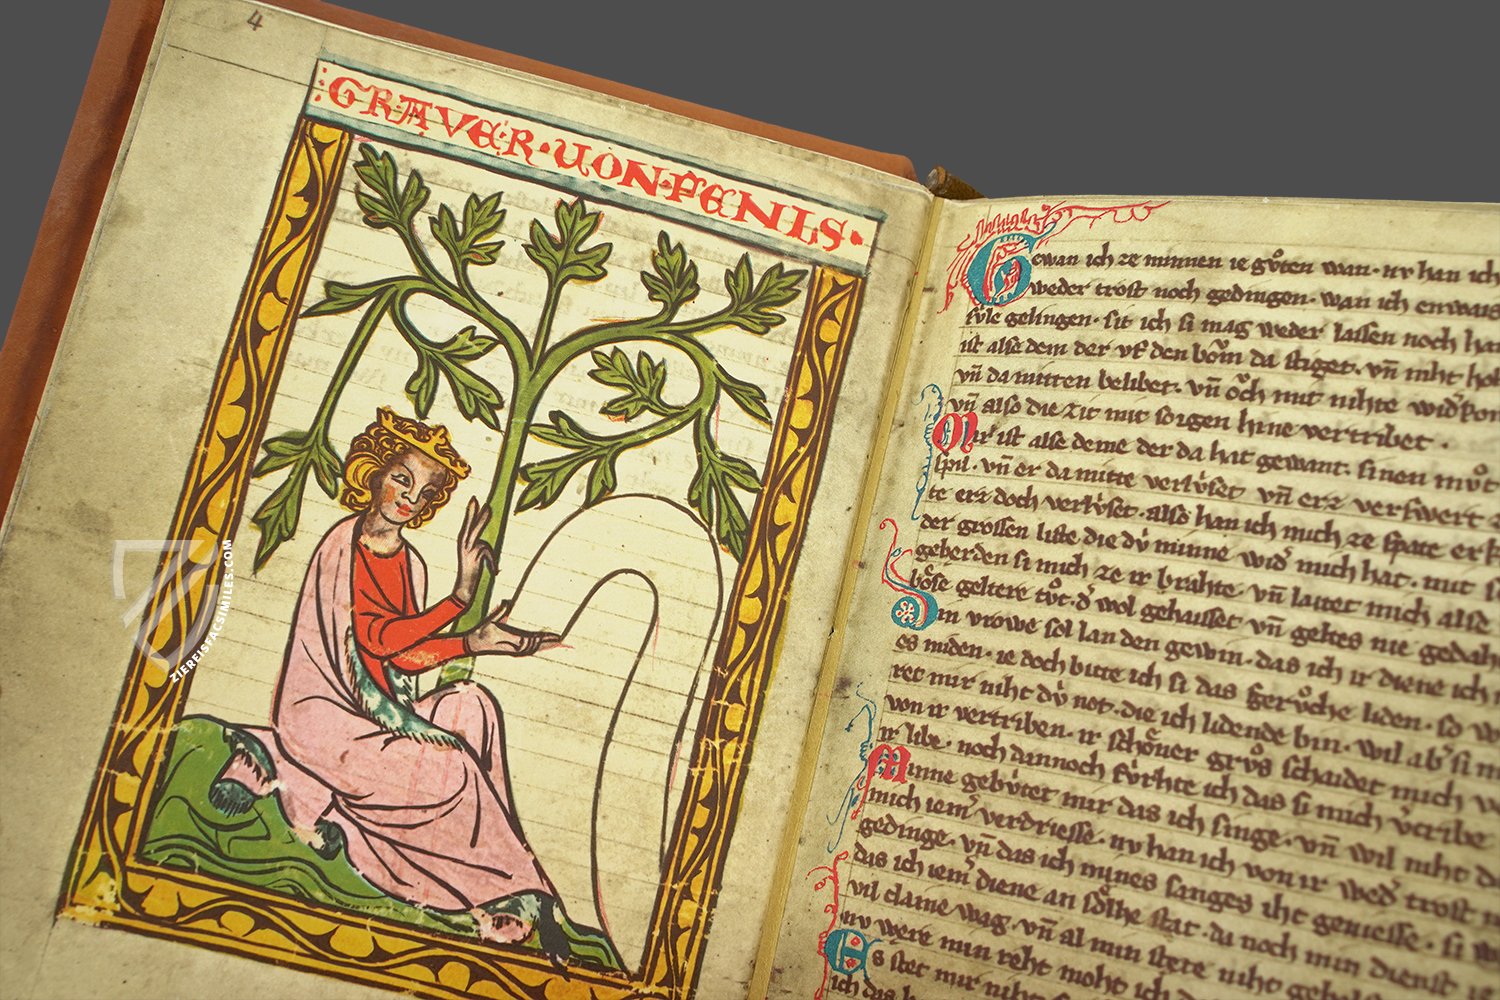 4
·GRAVE·R·VON·FENIS·
ZIEREISFACSIMILES.COM
Gewan ich ze minnen ie gůten wan· nv han ich
weder trost noch gedingen· wan ich enwais
sv́le gelingen· sit ich si mag weder lassen noch ha
ist alse dem der vf den bǒm da stiget· vn̄ niht ho
vn̄ da mitten belibet· vn̄ ǒch mit nihte wid̓ kon
vn̄ also die zit mit sorgen hine vertribet·
Mir ist alse deme der da hat gewant· sinen můt
spil· vn̄ er da mitte verlv́set vn̄ erz verswert
te erz doch verlv́set· also han ich mich ze spate erk
der grossen liste die dv́ minne wid̓ mich hat· mit s
geberden si mich ze ir brahte· vn̄ laitet mich alse
bǒse geltere tůt· d̓ wol gehaisset vn̄ geltes nie gedah
Min vrowe sol lan den gewin· das ich ir diene ich
es miden· ie doch bitte ich si das si gerůche liden· so w
ret mir niht dv́ not· die ich lidende bin· wil ab̓ si m
von ir vertriben· ir schǒner grůs schaidet mich v
ir libe· noch dannoch fv́rhte ich das si mich v̓tribe
Minne gebv́tet mir das ich singe· vn̄ wil niht d
mich iem̓ verdriesse· nv han ich von ir wed̓ trost n
gedinge· vn̄ das ich mines sanges iht geniesse· si w
das ich iem̓ diene an sǒlhe stat· da noch min dienst ie
vil claine wag· vn̄ al min stete niht
nv were min reht moht ich
Es stet mir niht
ich das